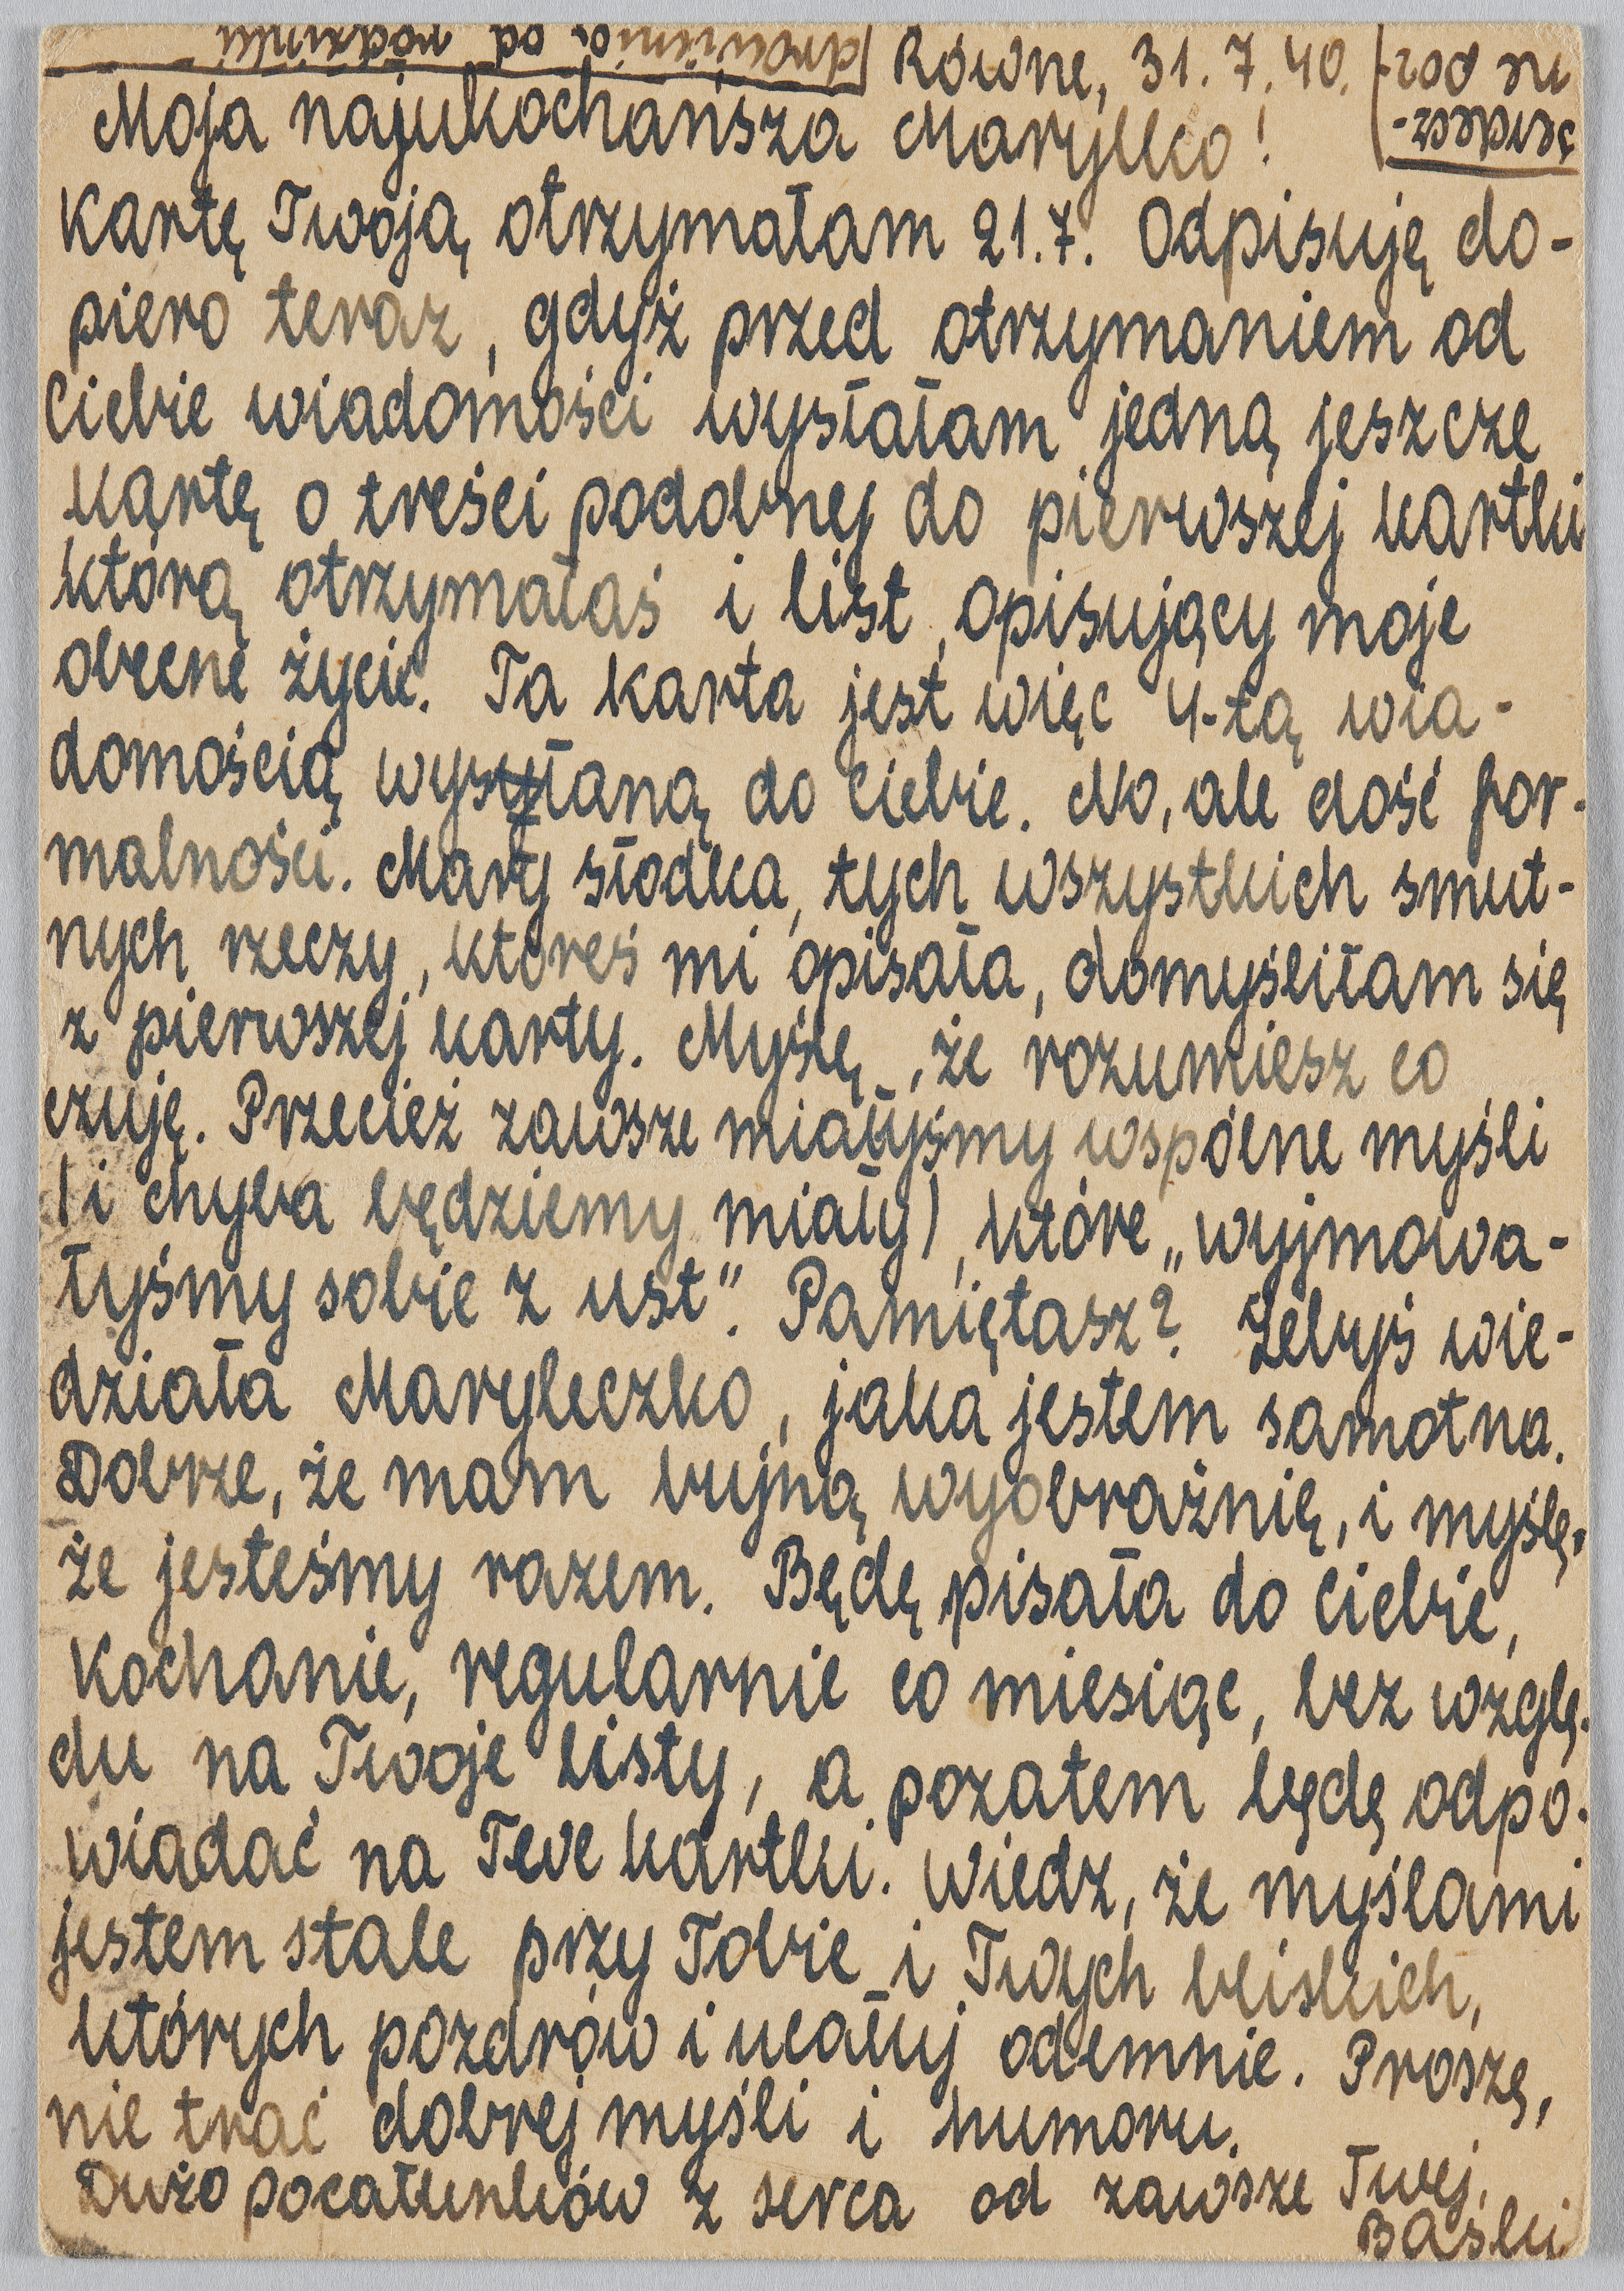 Równe, 31.7.40.
Moja najukochańsza Marylko!
Kartę Twoją otrzymałam 21.7. Odpisuję do-
piero teraz, gdyż przed otrzymaniem od
Ciebie wiadomości wysłałam jedną jeszcze
kartę o treści podobnej do pierwszej kartki
którą otrzymałaś i list, opisujący moje
obecne życie. Ta karta jest więc 4-tą wia-
domością wysyłaną do Ciebie. No, ale dość for-
malności. Mary słodka, tych wszystkich smut-
nych rzeczy, któreś mi opisała, domyśliłam się
z pierwszej karty. Myślę, że rozumiesz co
czuję. Przecież zawsze miałyśmy wspólne myśli
(i chyba będziemy miały), które „wyjmowa-
łyśmy sobie z ust”. Pamiętasz? Żebyś wie-
działa Maryleczko, jaka jestem samotna.
Dobrze, że mam bujną wyobraźnię, i myślę,
że jesteśmy razem. Będę pisała do Ciebie,
Kochanie, regularnie co miesiąc, bez wzglę-
du na Twoje listy, a pozatem będę odpo-
wiadać na Twe kartki. Wiedz, że myślami
jestem stale przy Tobie i Twych bliskich,
których pozdrów i ucałuj odemnie. Proszę,
nie trać dobrej myśli i humoru.
Dużo pocałunków z serca od zawsze Twej
Baśki
serdecz-
ne poz-
drowienia od rodzinki